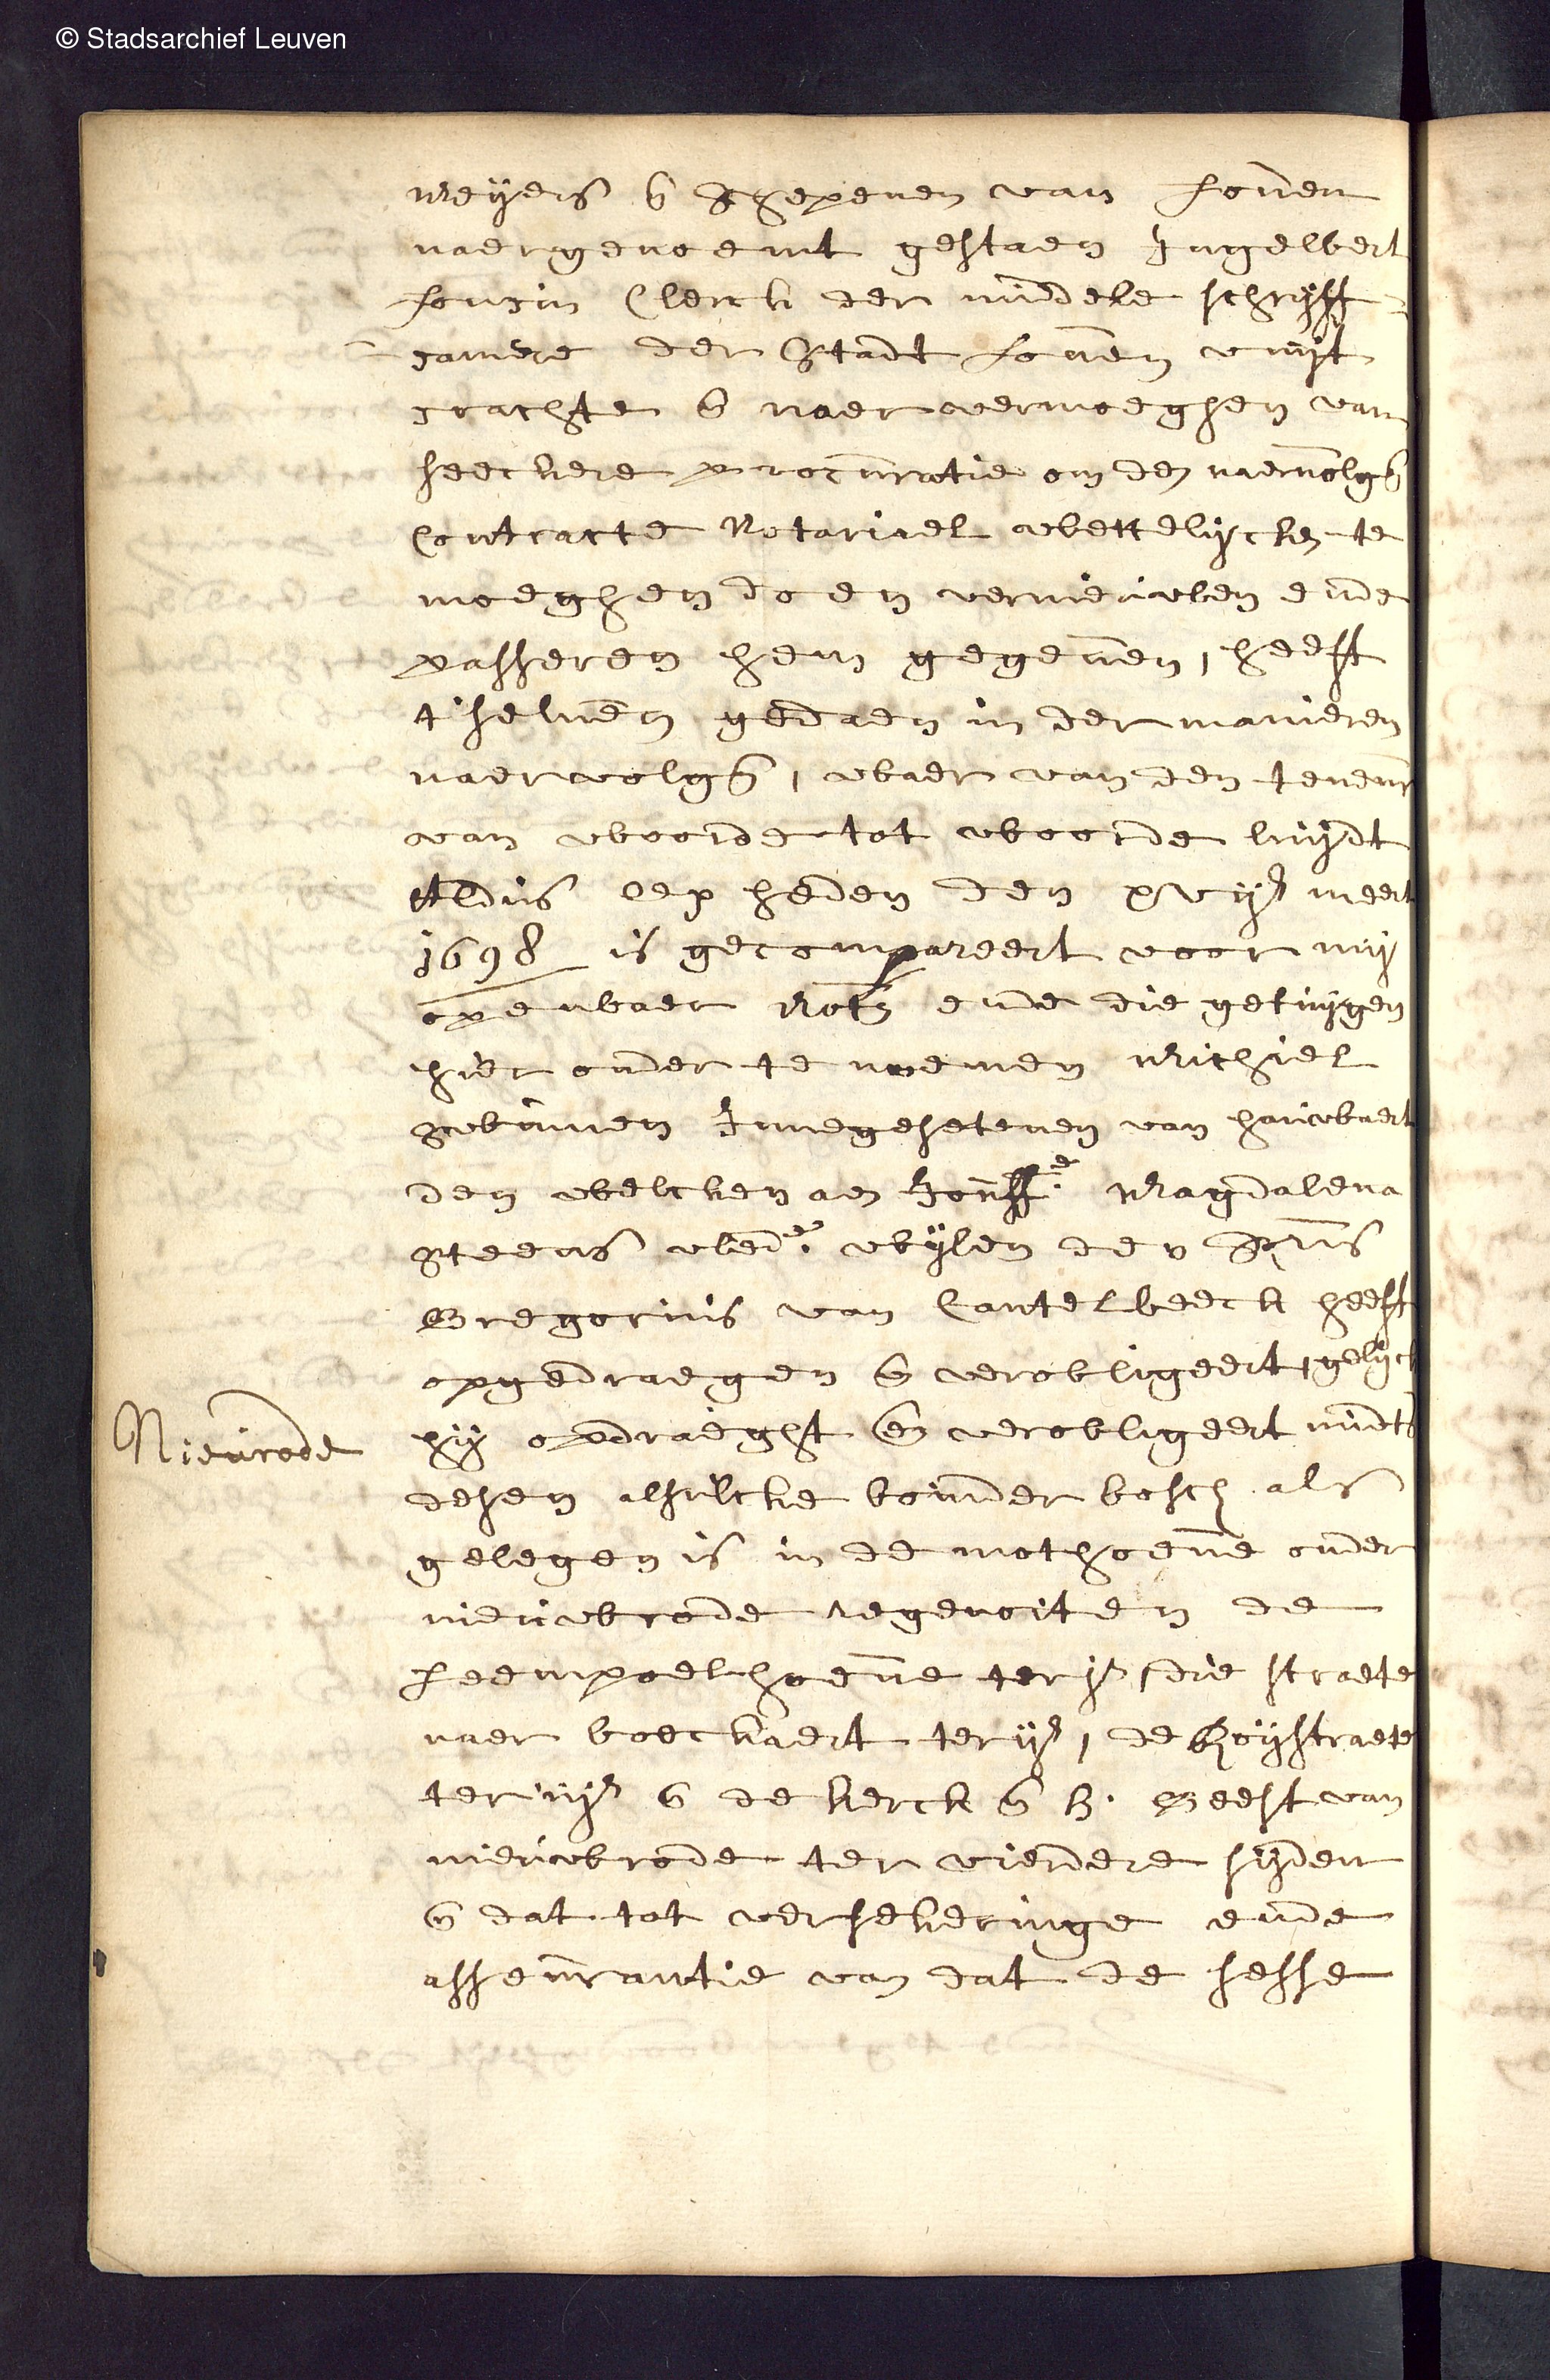 © Stadsarchief Leuven
Meÿers en schepenen van Loven
naergenoemt gestaen Ingelbert
Lousin Clerck der middele schryff
camere der Stadt Loven vuyt
crachte en naer vermoeghen van
seeckere procuratie om den naervolgen
Contracte Notariael wettelycken te
moeghen doen vernieuwen ende
passeren hem gegeven, heeft
t'selven gedaen in der manieren
naervolgen, waer van den teneur
van woorde tot woorde luydt
Aldus Op heden den xviien meert
1698 is gecompareert voor my
openbaer Nots ende die getuygen
hier onder te noemen Michiel
Swinnen Innegesetenen van hauwaert
den welcken aen Jouffe. Magdalena
Steens wede. wÿlen de
Gregorius van Cantelbeeck heeft
opgedraegen en verobligeert, gelyck
Nieurode
hy opdraeght en verobligeert midts
desen alsulcke boinder bosch als
gelegen is in de mothoeve onder
nieuwrode regenoiten de
Leempoelhoeve ter ie, die straete
naer boeckaert ter iie, de Roystraete
ter iiie en de kerck en H. Geest van
nieuwrode ter vierdere syden
en dat tot versekeringe ende
asseurantie van dat de sesse